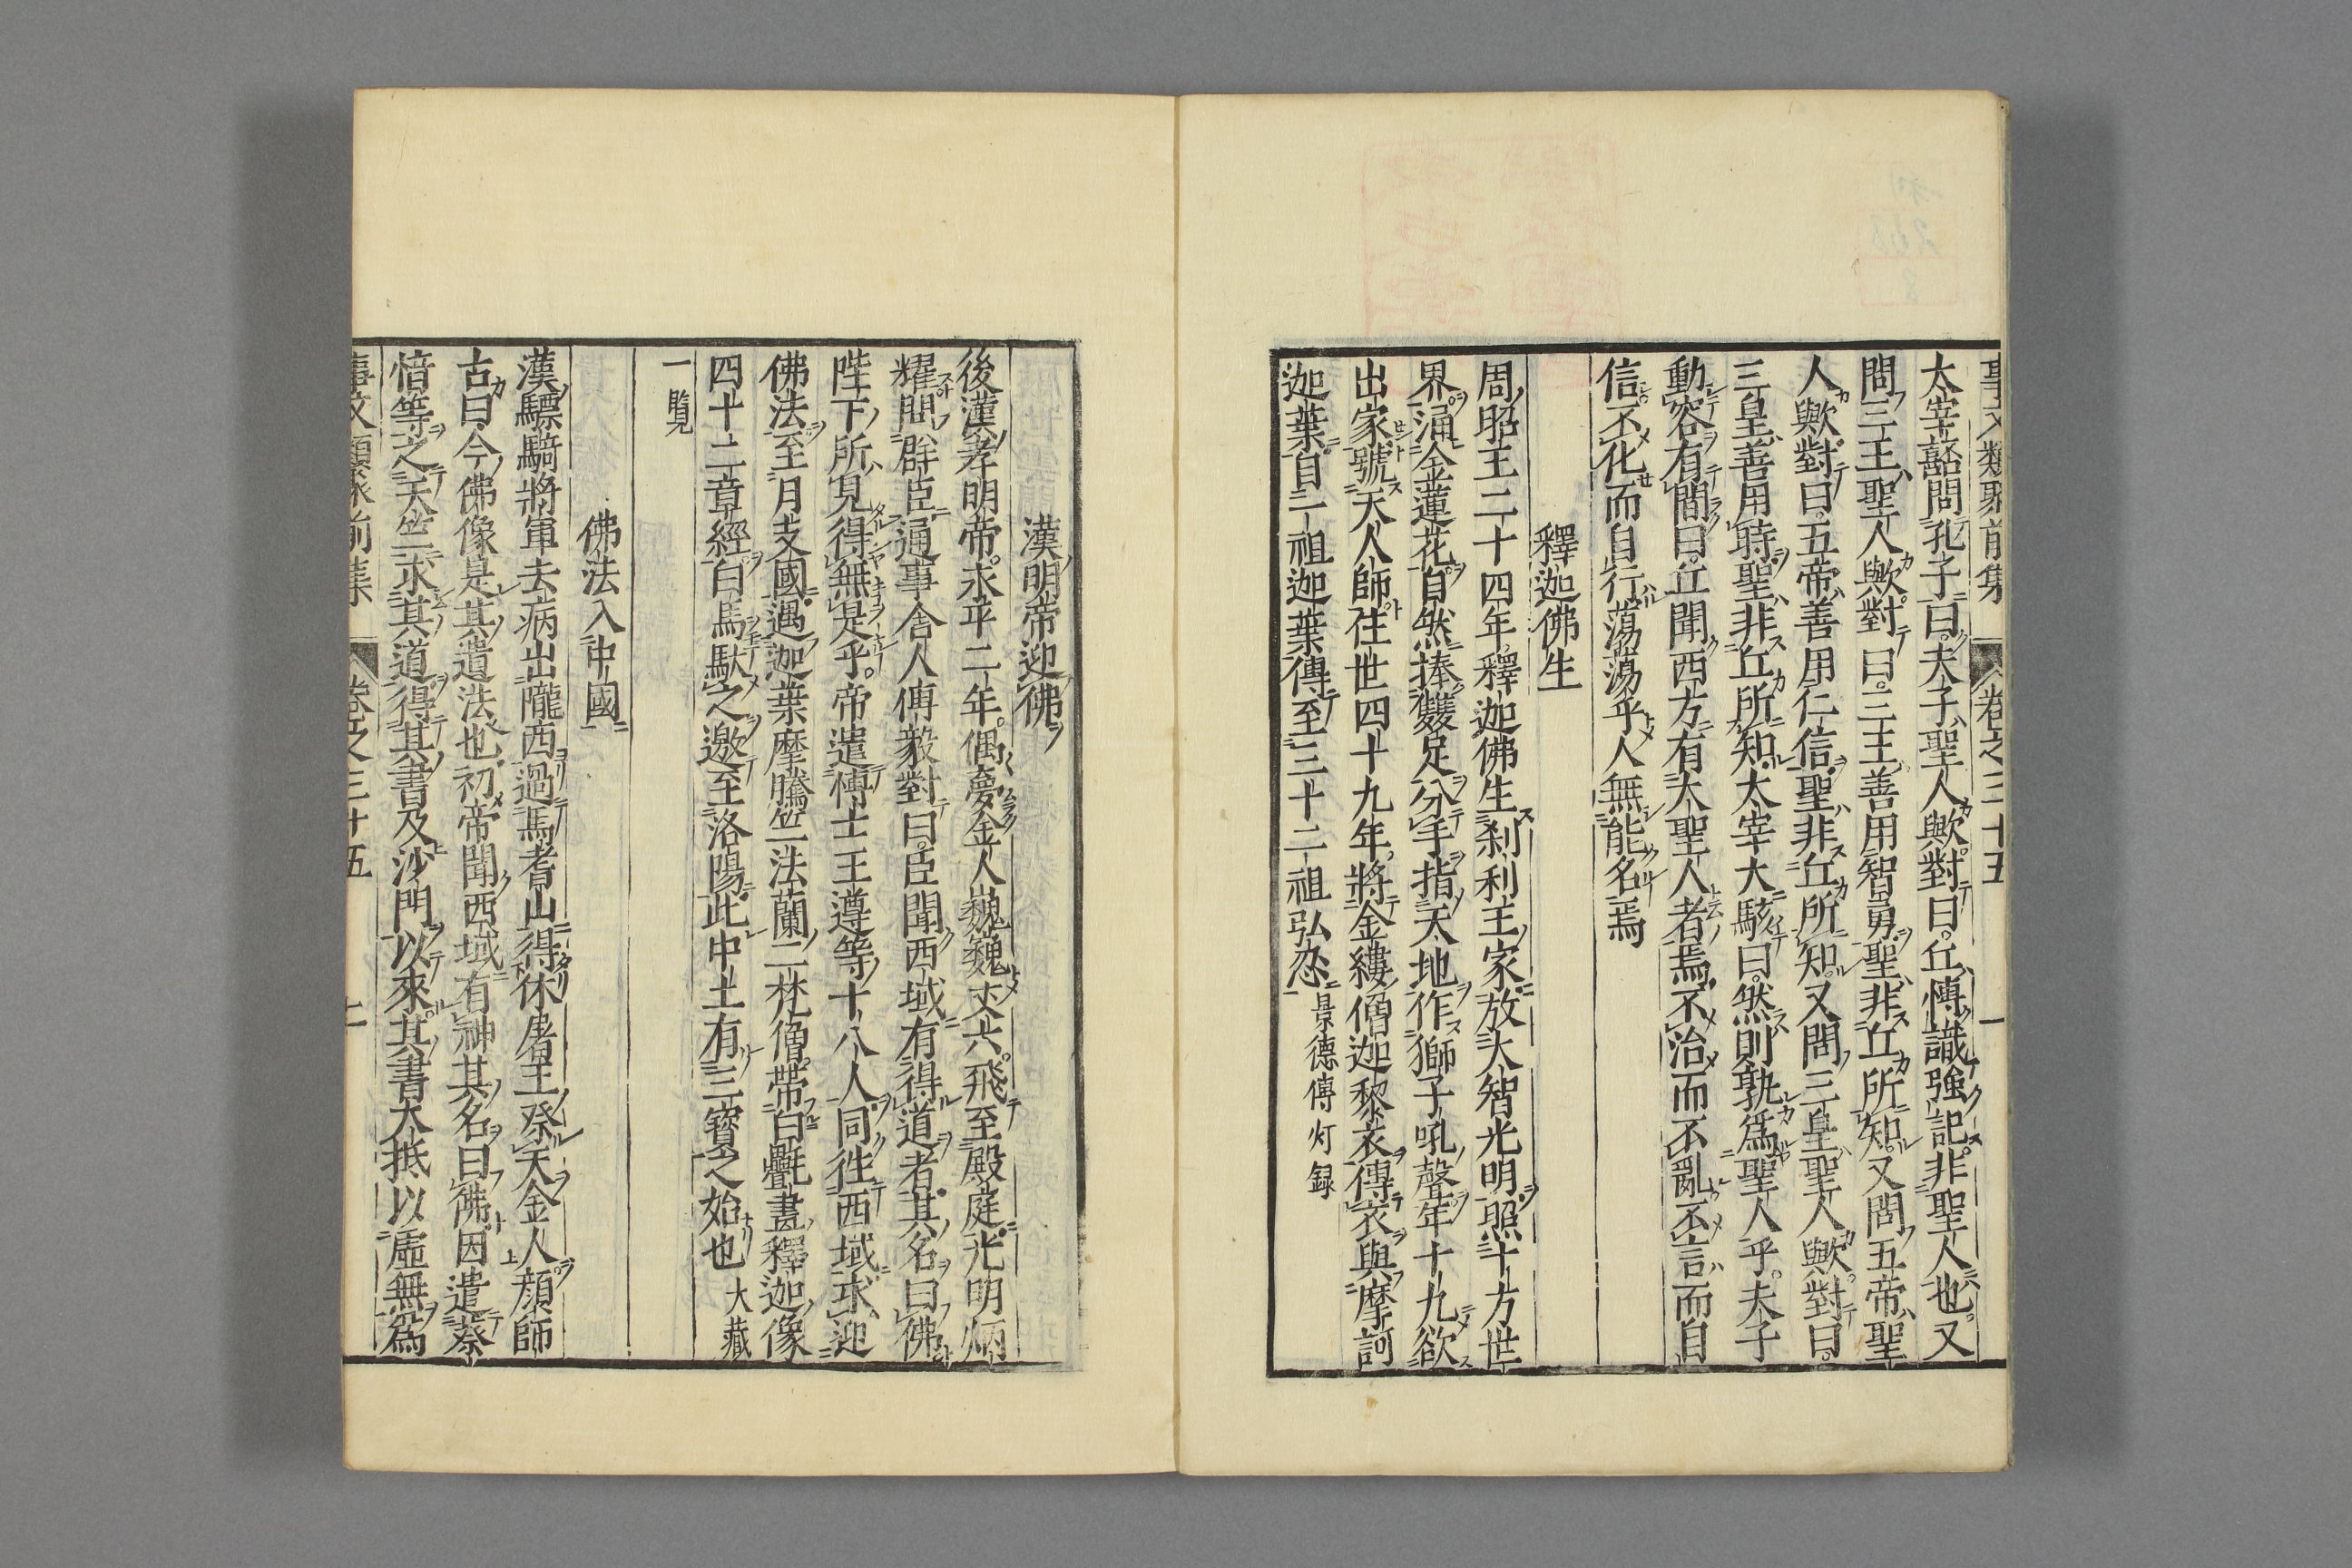 事文類聚前集 卷之三十五 一
太宰嚭問孔子曰夫子聖人歟對曰丘博識強記非聖人也又
問三王聖人歟對曰三王善用智勇聖非丘所知又問五帝聖
人歟對曰五帝善用仁信聖非丘所知又問三皇聖人歟對曰
三皇善用時聖非丘所知太宰大駭曰然則孰爲聖人乎夫子
動容有間曰丘聞西方有大聖人者焉不治而不亂不言而自
信不化而自行蕩蕩乎人無能名焉
釋迦佛生
周昭王二十四年釋迦佛生刹利王家放大智光明照十方世
界涌金蓮花自然捧雙足分手指天地作獅子吼聲年十九欲
出家號天人師住世四十九年將金縷僧迦黎衣傳衣與摩訶
迦葉自一祖迦葉傳至三十二祖弘忍 景德傳灯録
漢明帝迎佛
後漢孝明帝永平二年偶夢金人巍巍丈六飛至殿庭光明炳
耀問群臣通事舎人傅毅對曰臣聞西域有得道者其名曰佛
陛下所見得無是乎帝遣博士王遵等十八人同往西域求迎
佛法至月支國遇迦葉摩騰竺法蘭二梵僧帶白氎畫釋迦像
四十二章經白馬馱之邀至洛陽此中土有三寳之始也 大藏
一覧
佛法入中國
漢驃騎將軍去病出隴西過焉耆山得休屠王祭天金人顔師
古曰今佛像是其遺法也初帝聞西域有神其名曰佛因遣蔡
愔等之天竺求其道得其書及沙門以來其書大抵以虚無爲
事文類聚前集 卷之三十五 二